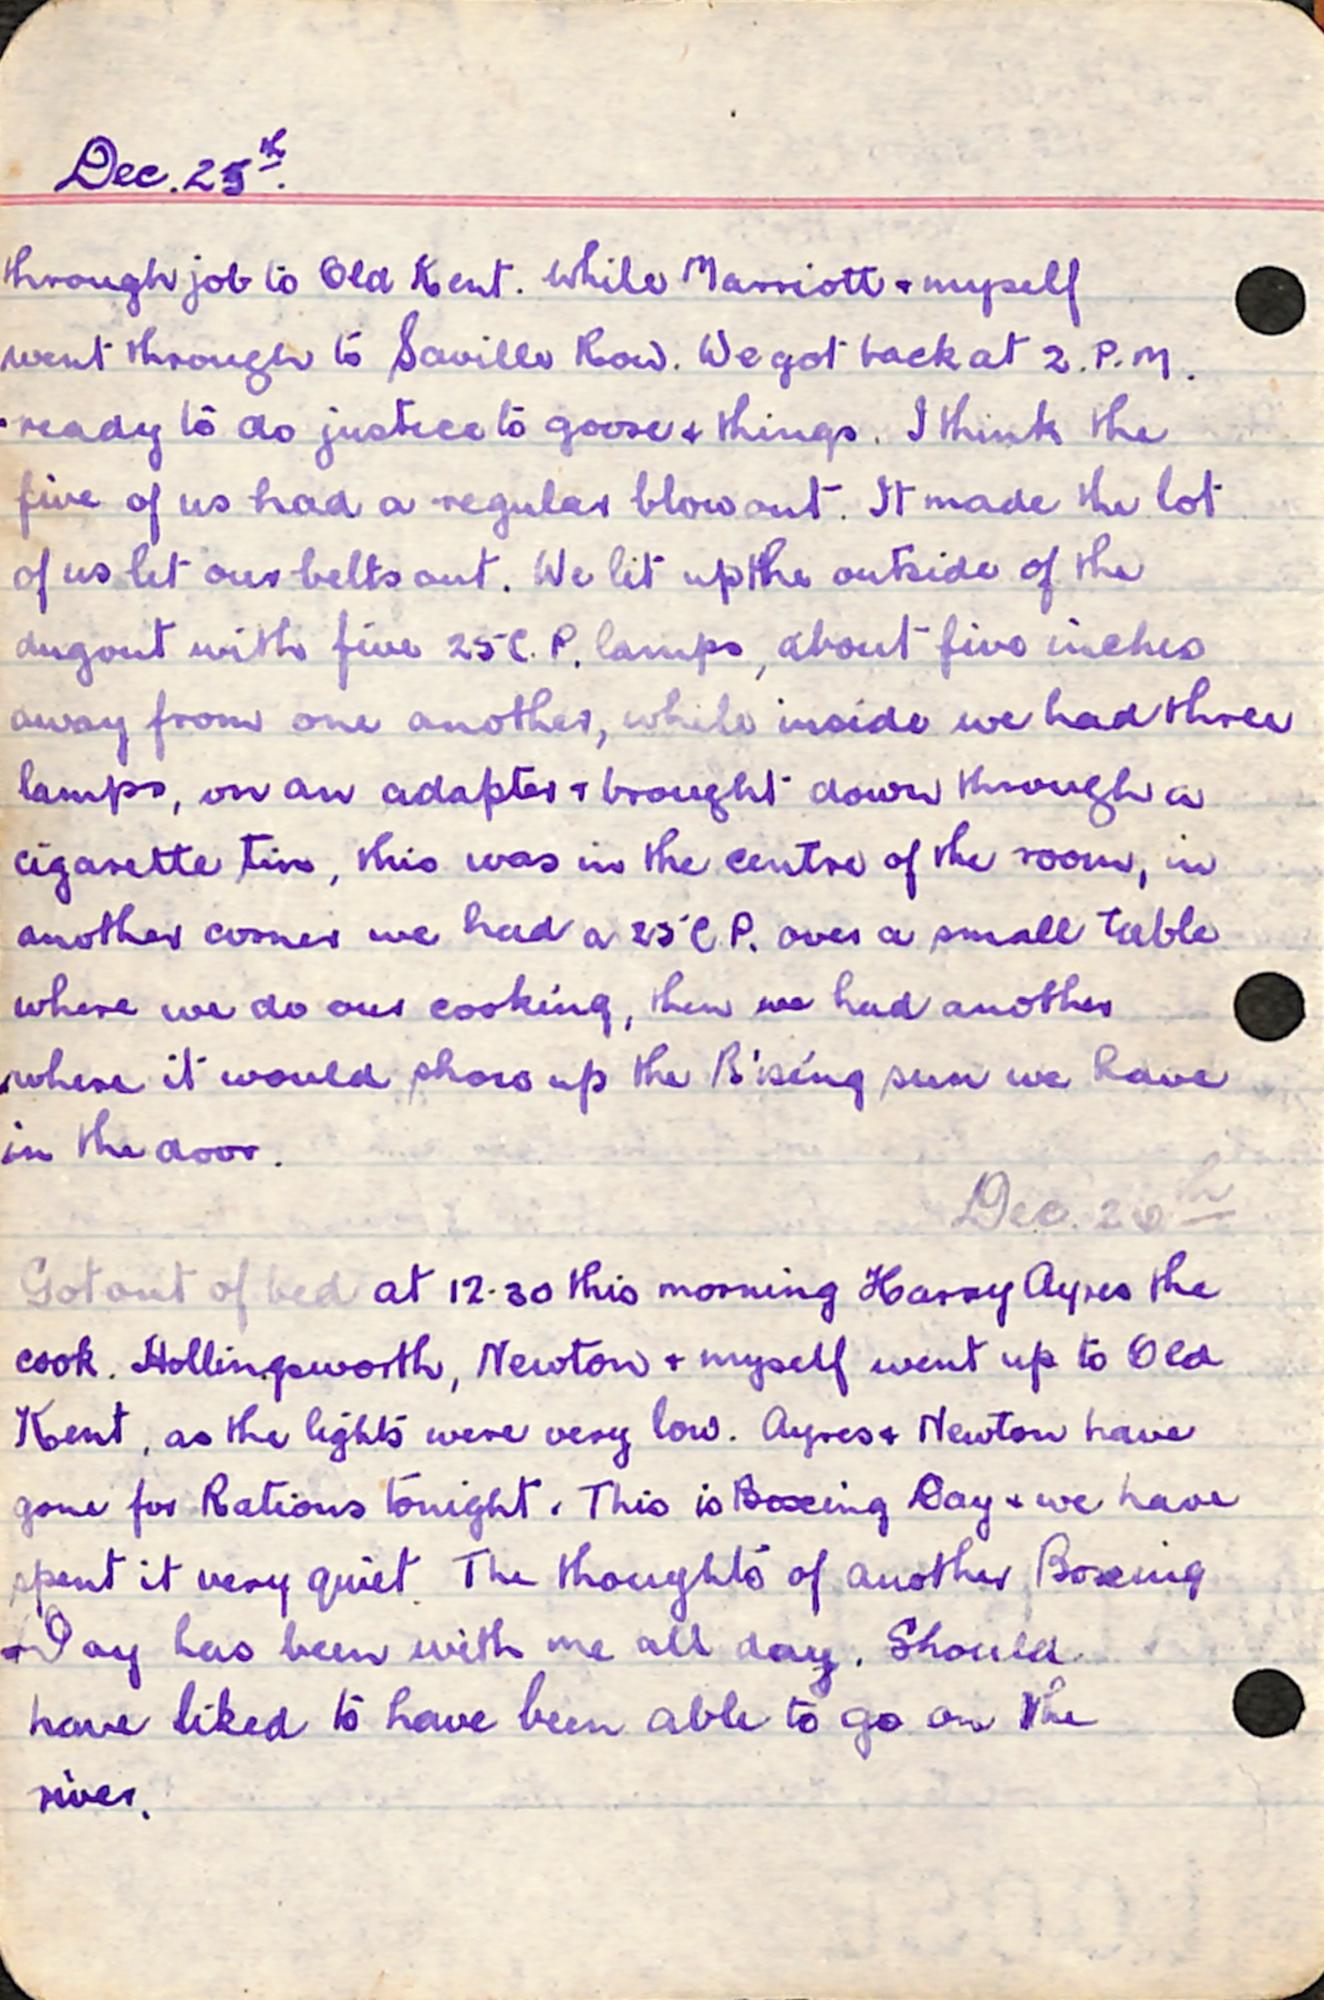 Dec. 25th.
through job to Old Kent. while Marriott & myself
went through to Saville Row. We got back at 2.P.M.
ready to do justice to goose & things. I think the
five of us had a regular blow out. It made the lot
of us let our belts out. We lit up the outside of the
dugout with five 25 C.P. lamps, about five inches
away from one another, while inside we had three
lamps, on an adapter & brought down through a
cigarette tin, this was in the centre of the room, in
another corner we had a 25 C.P. over a small table
where we do our cooking, then we had another
where it would show up the Rising sun we have
in the door.
Dec. 26th
Got out of bed at 12.30 this morning Harry Ayres the
cook. Hollingsworth, Newton & myself went up to Old
Kent, as the lights were very low. Ayres & Newton have
gone for Rations tonight. This is Boxing Day & we have
spent it very quiet. The thoughts of another Boxing
Day has been with me all day. Should
have liked to have been able to go on the
river.